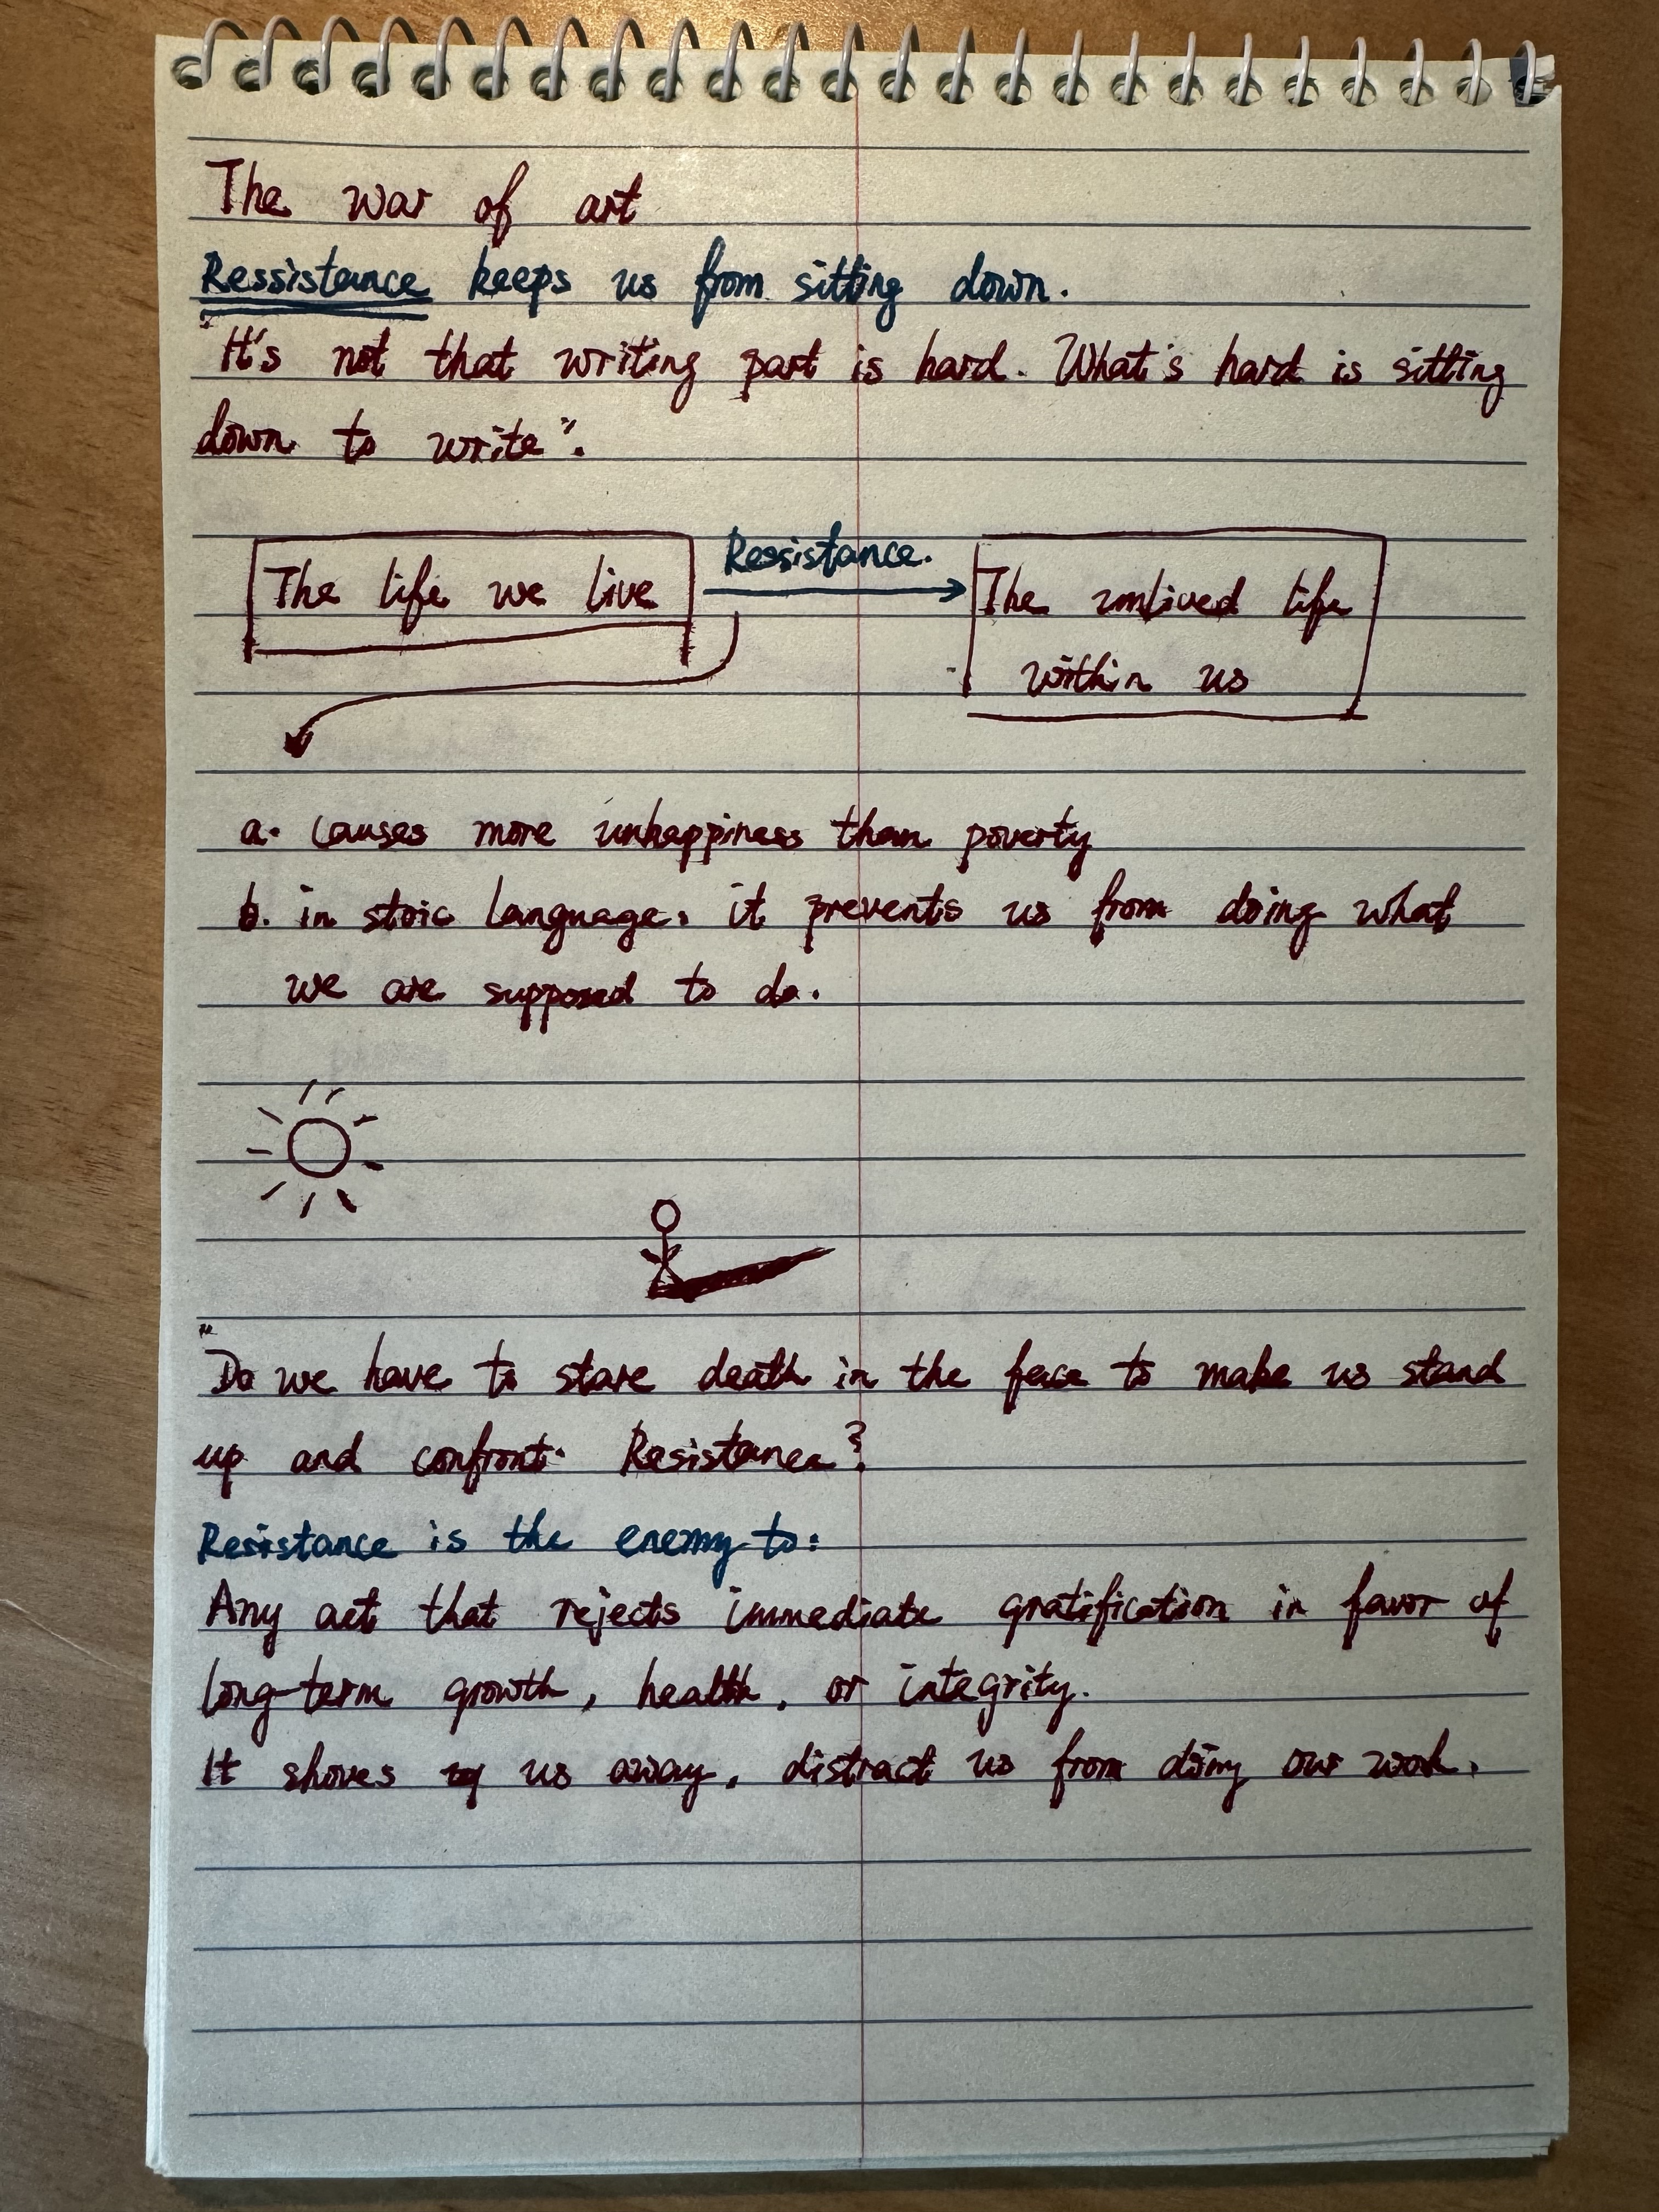 The war of art
Ressistance keeps us from sitting down.
"It's not that writing part is hard. What's hard is sitting
down to write".
The life we live
Ressistance.
The unlived life
within us
a. causes more unhappiness than poverty
b. in stoic language, it prevents us from doing what
we are supposed to do.
"Do we have to stare death in the face to make us stand
up and confront Resistance?
Resistance is the enemy to:
Any act that rejects immediate gratification in favor of
long-term growth, health, or integrity.
It shoves us away, distract us from doing our work.